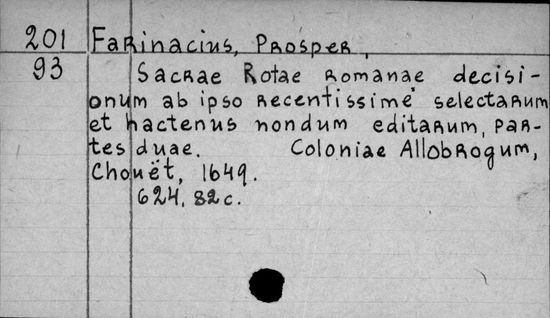 201 Farinacius, Prosper,
93 Sacrae Rotae romanae decisi-
onum ab ipso recentissime selectarum
et hactenus nondum editarum, par-
tes duae. Coloniae Allobrogum,
Chouët, 1649.
624, 82 c.